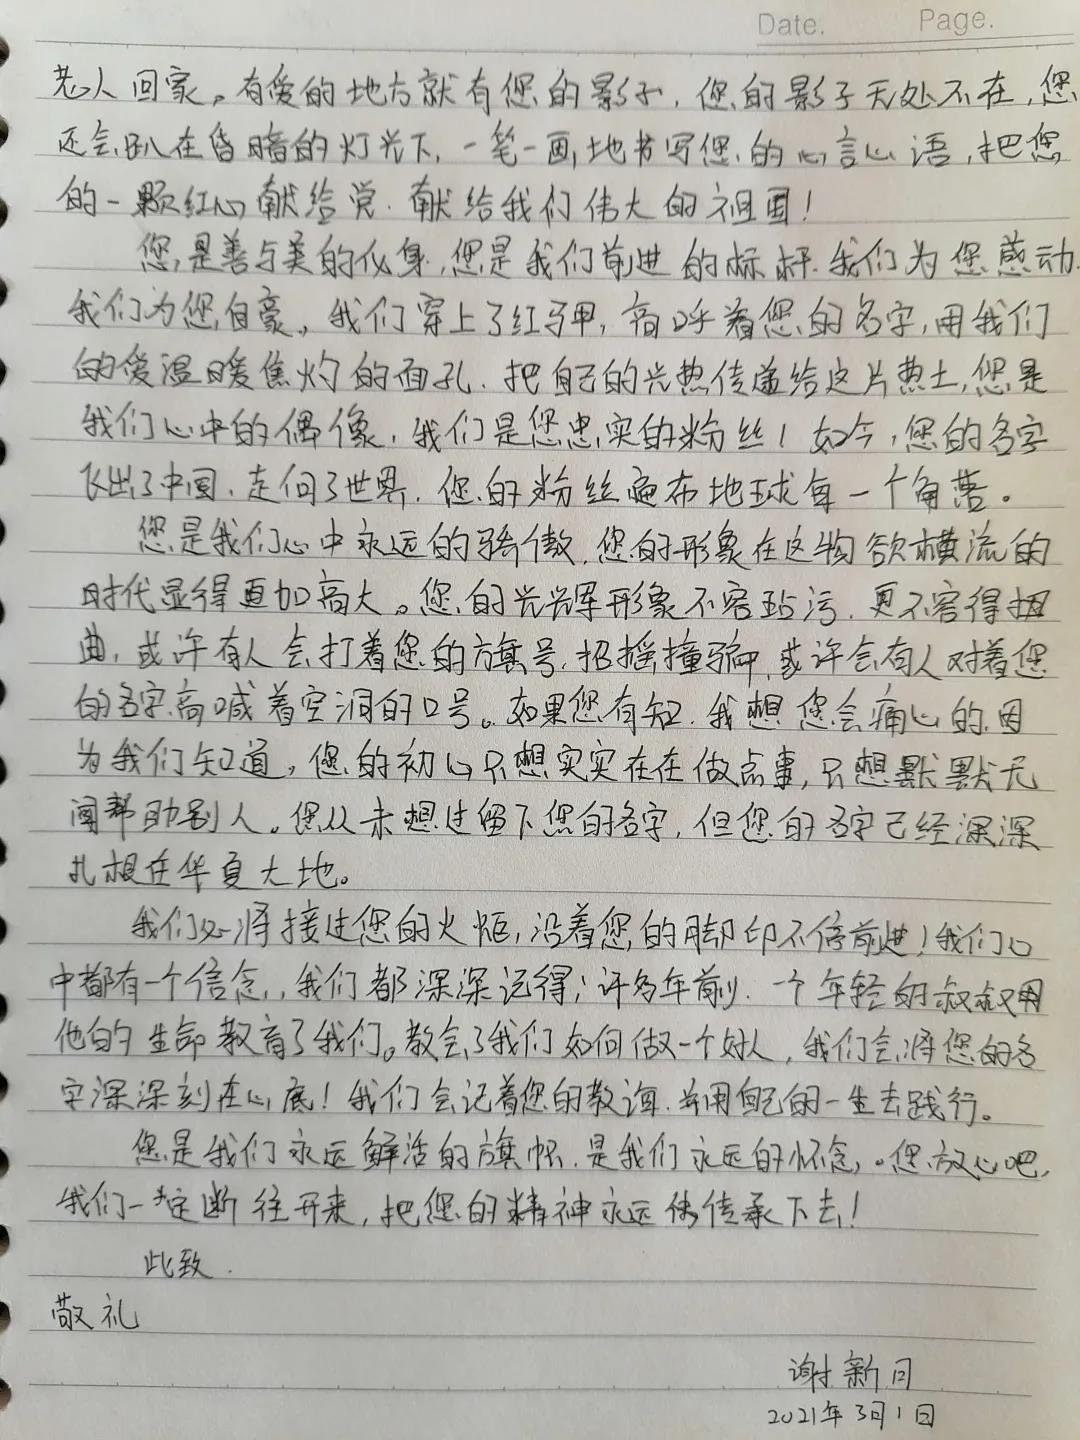 Date.
Page.
老人回家。有爱的地方就有您的影子，您的影子无处不在，您
还会趴在昏暗的灯光下，一笔一画地书写您的心言心语，把您
的一颗红心献给党，献给我们伟大的祖国！
您是善与美的化身，您是我们前进的标杆，我们为您感动，
我们为您自豪。我们穿上了红马甲，高呼着您的名字，用我们
的爱温暖焦灼的面孔，把自己的光热传递给这片热土，您是
我们心中的偶像，我们是您忠实的粉丝！如今，您的名字
飞出了中国，走向了世界，您的粉丝遍布地球每一个角落。
您是我们心中永远的骄傲，您的形象在这物欲横流的
时代显得更加高大。您的光辉形象不容玷污，更不容得扭
曲，或许有人会打着您的旗号，招摇撞骗，或许会有人对着您
的名字高喊着空洞的口号。如果您有知，我想您会痛心的，因
为我们知道，您的初心只想实实在在做点事，只想默默无
闻帮助别人。您从未想过留下您的名字，但您的名字已经深深
扎根在华夏大地。
我们必将接过您的火炬，沿着您的脚印不停前进！我们心
中都有一个信念，我们都深深记得；许多年前，一个年轻的叔叔用
他的生命教育了我们。教会了我们如何做一个好人，我们会将您的名
字深深刻在心底！我们会记着您的教诲，并用自己的一生去践行。
您是我们永远鲜活的旗帜，是我们永远的怀念。您放心吧，
我们一定断往开来，把您的精神永远传承下去！
此致
敬礼
谢新日
2021年3月1日